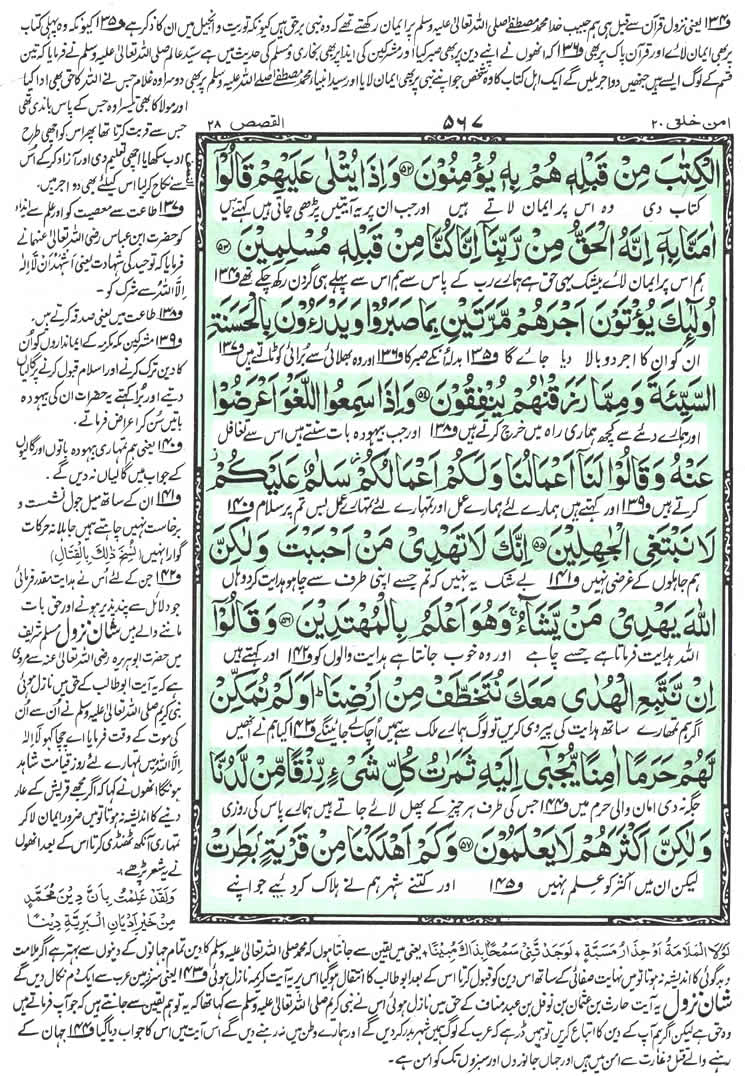 و۱۳۴ یعنی نزول قرآن سے قبل ہی ہم حبیب خدا محمد مصطفےٰ صلی اللہ تعالیٰ علیہ وسلم پر ایمان رکھتے تھے کہ وہ نبی برحق ہیں کیونکہ توریت و انجیل میں ان کا ذکر ہے و۱۳۵ کیونکہ وہ پہلی کتاب
پر بھی ایمان لائے اور قرآن پاک پر بھی و۱۳۶ کہ انھوں نے اپنے دین پر بھی صبر کیا اور مشرکین کی ایذا پر بھی بخاری و مسلم کی حدیث میں ہے سید عالم صلی اللہ تعالیٰ علیہ وسلم نے فرمایا کہ تین
قسم کے لوگ ایسے ہیں جنھیں دو اجر ملیں گے ایک اہل کتاب کا وہ شخص جو اپنے نبی پر بھی ایمان لایا اور سید انبیاء محمد مصطفےٰ صلی اللہ علیہ وسلم پر بھی دوسرا وہ غلام جس نے اللہ کا حق بھی ادا کیا
اور مولا کا بھی تیسرا وہ جس کے پاس باندی تھی
جس سے قربت کرتا تھا پھر اس کو اچھی طرح
ادب سکھایا اچھی تعلیم دی اور آزاد کر کے اس
سے نکاح کر لیا اس کیلئے بھی دو اجر ہیں۔
و۱۳۷ طاعت سے معصیت کو اور علم سے ایذاء
کو حضرت ابن عباس رضی اللہ تعالیٰ عنہما نے
فرمایا کہ توحید کی شہادت یعنی اَشْهَدُ اَنْ لَّا اِلٰهَ
اِلَّا اللّٰهُ سے شرک کو۔
و۱۳۸ طاعت میں یعنی صدقہ کرتے ہیں۔
و۱۳۹ مشرکین مکہ مکرمہ کے ایمانداروں کو ان
کا دین ترک کرنے اور اسلام قبول کرنے پر گالیاں
دیتے اور برا کہتے یہ حضرات ان کی بیہودہ
باتیں سن کر اعراض فرماتے۔
و۱۴۰ یعنی ہم تمہاری بیہودہ باتوں اور گالیوں
کے جواب میں گالیاں نہ دیں گے۔
و۱۴۱ ان کے ساتھ میل جول نشست و
برخاست نہیں چاہتے ہیں جاہلانہ حرکات
گوارا نہیں (نُسِخَ ذٰلِكَ بِالْقِتَالِ)
و۱۴۲ جن کے لئے اس نے ہدایت مقدر فرمائی
جو دلائل سے پند پذیر ہونے اور حق بات
ماننے والے ہیں شان نزول مسلم شریف
میں حضرت ابوہریرہ رضی اللہ تعالیٰ عنہ سے مروی
ہے کہ یہ آیت ابو طالب کے حق میں نازل ہوئی
نبی کریم صلی اللہ تعالیٰ علیہ وسلم نے ان سے ان
کی موت کے وقت فرمایا اے چچا کہو لَا اِلٰهَ
اِلَّا اللّٰهُ میں تمہارے لئے روز قیامت شاہد
ہونگا انھوں نے کہا کہ اگر مجھے قریش کے عار
دینے کا اندیشہ نہ ہوتا تو میں ضرور ایمان لا کر
تمہاری آنکھ ٹھنڈی کرتا اس کے بعد انھوں
نے یہ شعر پڑھے۔
وَلَقَدْ عَلِمْتُ بِاَنَّ دِيْنَ مُحَمَّدٍ
مِنْ خَيْرِ اَدْيَانِ الْبَرِيَّةِ دِيْنًا
امن خلق ۲۰
۵۶۷
القصص ۲۸
الْكِتٰبَ مِنْ قَبْلِهٖ هُمْ بِهٖ يُؤْمِنُوْنَ ۵۲ وَاِذَا يُتْلٰى عَلَيْهِمْ قَالُوْۤا
کتاب دی وہ اس پر ایمان لاتے ہیں اور جب ان پر یہ آیتیں پڑھی جاتی ہیں کہتے ہیں
اٰمَنَّا بِهٖۤ اِنَّهُ الْحَقُّ مِنْ رَّبِّنَاۤ اِنَّا كُنَّا مِنْ قَبْلِهٖ مُسْلِمِيْنَ ۵۳
ہم اس پر ایمان لائے بیشک یہی حق ہے ہمارے رب کے پاس سے ہم اس سے پہلے ہی گردن رکھ چکے تھے و۱۳۴
اُولٰٓئِكَ يُؤْتَوْنَ اَجْرَهُمْ مَّرَّتَيْنِ بِمَا صَبَرُوْا وَيَدْرَءُوْنَ بِالْحَسَنَةِ
ان کو ان کا اجر دوبالا دیا جائے گا و۱۳۵ بدلہ ان کے صبر کا و۱۳۶ اور وہ بھلائی سے برائی کو ٹالتے ہیں و۱۳۷
السَّيِّئَةَ وَمِمَّا رَزَقْنٰهُمْ يُنْفِقُوْنَ ۵۴ وَاِذَا سَمِعُوا اللَّغْوَ اَعْرَضُوْا
اور ہمارے دئیے سے کچھ ہماری راہ میں خرچ کرتے ہیں و۱۳۸ اور جب بیہودہ بات سنتے ہیں اس سے تغافل
عَنْهُ وَقَالُوْا لَنَاۤ اَعْمَالُنَا وَلَكُمْ اَعْمَالُكُمْ سَلٰمٌ عَلَيْكُمْ
کرتے ہیں و۱۳۹ اور کہتے ہیں ہمارے لئے ہمارے عمل اور تمہارے لئے تمہارے عمل بس تم پر سلام و۱۴۰
لَا نَبْتَغِى الْجٰهِلِيْنَ ۵۵ اِنَّكَ لَا تَهْدِىْ مَنْ اَحْبَبْتَ وَلٰكِنَّ
ہم جاہلوں کے غرضی نہیں و۱۴۱ بے شک یہ نہیں کہ تم جسے اپنی طرف سے چاہو ہدایت کر دو ہاں
اللّٰهَ يَهْدِىْ مَنْ يَّشَآءُ وَهُوَ اَعْلَمُ بِالْمُهْتَدِيْنَ ۵۶ وَقَالُوْۤا
اللہ ہدایت فرماتا ہے جسے چاہے اور وہ خوب جانتا ہے ہدایت والوں کو و۱۴۲ اور کہتے ہیں
اِنْ نَّتَّبِعِ الْهُدٰى مَعَكَ نُتَخَطَّفْ مِنْ اَرْضِنَا اَوَلَمْ نُمَكِّنْ
اگر ہم تمہارے ساتھ ہدایت کی پیروی کریں تو لوگ ہمارے ملک سے ہمیں اچک لے جائینگے و۱۴۳ کیا ہم نے انھیں
لَّهُمْ حَرَمًا اٰمِنًا يُّجْبٰۤى اِلَيْهِ ثَمَرٰتُ كُلِّ شَىْءٍ رِّزْقًا مِّنْ لَّدُنَّا
جگہ نہ دی امان والی حرم میں و۱۴۴ جس کی طرف ہر چیز کے پھل لائے جاتے ہیں ہمارے پاس کی روزی
وَلٰكِنَّ اَكْثَرَهُمْ لَا يَعْلَمُوْنَ ۵۷ وَكَمْ اَهْلَكْنَا مِنْ قَرْيَةٍ بَطِرَتْ
لیکن ان میں اکثر کو علم نہیں و۱۴۵ اور کتنے شہر ہم نے ہلاک کر دئیے جو اپنے
لَوْلَا الْمَلَامَةُ اَوْ حِذَارُ مَسَبَّةٍ ٭ لَوَجَدْتَّنِىْ سَمْحًا بِذَاكَ مُبِيْنًا ٭ یعنی میں یقین سے جانتا ہوں کہ محمد صلی اللہ تعالیٰ علیہ وسلم کا دین تمام جہانوں کے دینوں سے بہتر ہے اگر ملامت
و بدگوئی کا اندیشہ نہ ہوتا تو میں نہایت صفائی کے ساتھ اس دین کو قبول کرتا اس کے بعد ابو طالب کا انتقال ہو گیا اس پر یہ آیت کریمہ نازل ہوئی و۱۴۳ یعنی سرزمین عرب سے ایک دم نکال دیں گے
شان نزول یہ آیت حارث بن عثمان بن نوفل بن عبد مناف کے حق میں نازل ہوئی اس نے نبی کریم صلی اللہ تعالیٰ علیہ وسلم سے کہا تھا کہ یہ تو ہم یقین سے جانتے ہیں کہ جو آپ فرماتے ہیں
وہ حق ہے لیکن اگر ہم آپ کے دین کا اتباع کریں تو ہمیں ڈر ہے کہ عرب کے لوگ ہمیں شہر بدر کر دیں گے اور ہمارے وطن میں نہ رہنے دیں گے اس آیت میں اس کا جواب دیا گیا و۱۴۴ جہاں کے
رہنے والے قتل و غارت سے امن میں ہیں اور جہاں جانوروں اور سبزوں تک کو امن ہے۔